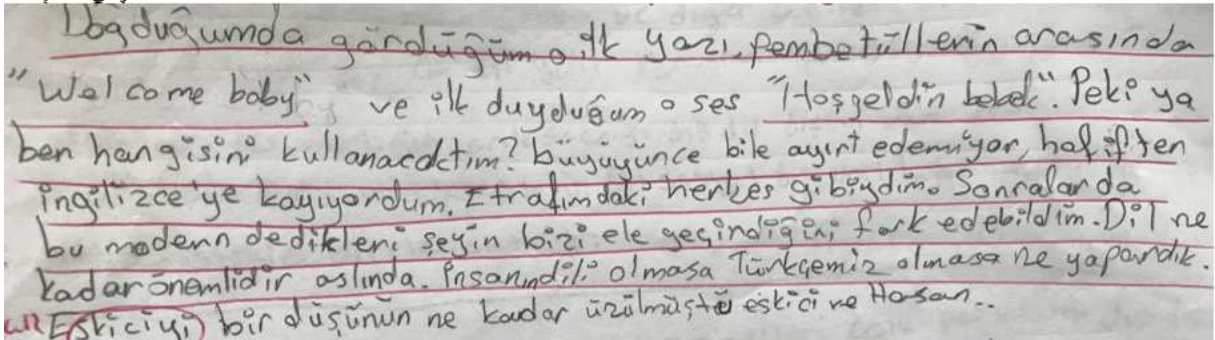 Doğduğumda gördüğüm o ilk yazı, pembe tüllerin arasında
"Welcome baby" ve ilk duyduğum o ses "Hoşgeldin bebek". Peki ya
ben hangisini kullanacaktım? büyüyünce bile ayırt edemiyor, hafiften
ingilizce'ye kayıyordum. Etrafımdaki herkes gibiydim. Sonralarda
bu modern dedikleri şeyin bizi ele geçirdiğini fark edebildim. Dil ne
kadar önemlidir aslında. İnsanın dili olmasa Türkçemiz olmasa ne yapardık.
Eskiciyi bir düşünün ne kadar üzülmüştü eskici ve Hasan..